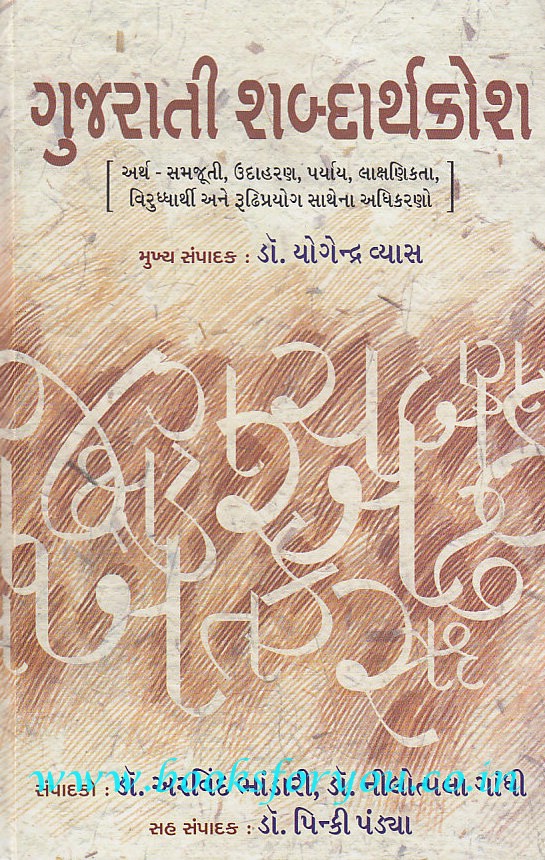 ગુજરાતી શબ્દાર્થકોશ
[ અર્થ - સમજૂતી, ઉદાહરણ, પર્યાય, લાક્ષણિકતા,
વિરુધ્ધાર્થી અને રૂઢિપ્રયોગ સાથેના અધિકરણો ]
મુખ્ય સંપાદક : ડૉ. યોગેન્દ્ર વ્યાસ
સંપાદકો : ડૉ. અરવિંદ ભાંડારી, ડૉ. નીલોત્પલા ગાંધી
www.booksforyou.co.in
સહ સંપાદક : ડૉ. પિન્કી પંડ્યા